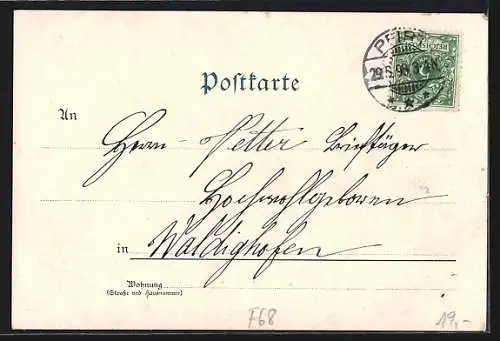 PFIRT
29.6.98.
REICHSPOST
Postkarte
An
Herrn Vetter Briefträger
Hochwohlgeboren
in Waldighofen
Wohnung
(Straße und Hausnummer)
F68
19,-